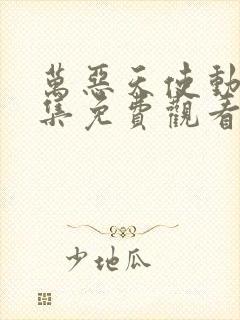 萬惡天使動
集免費觀看
少地瓜